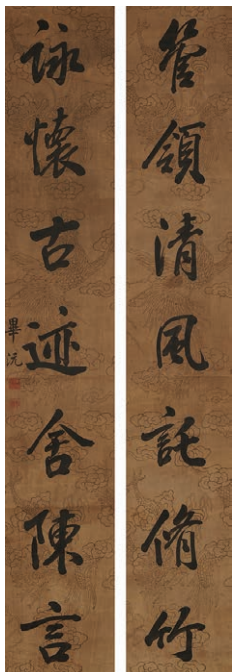 管領清風託脩竹
詠懷古迹舍陳言
畢沅